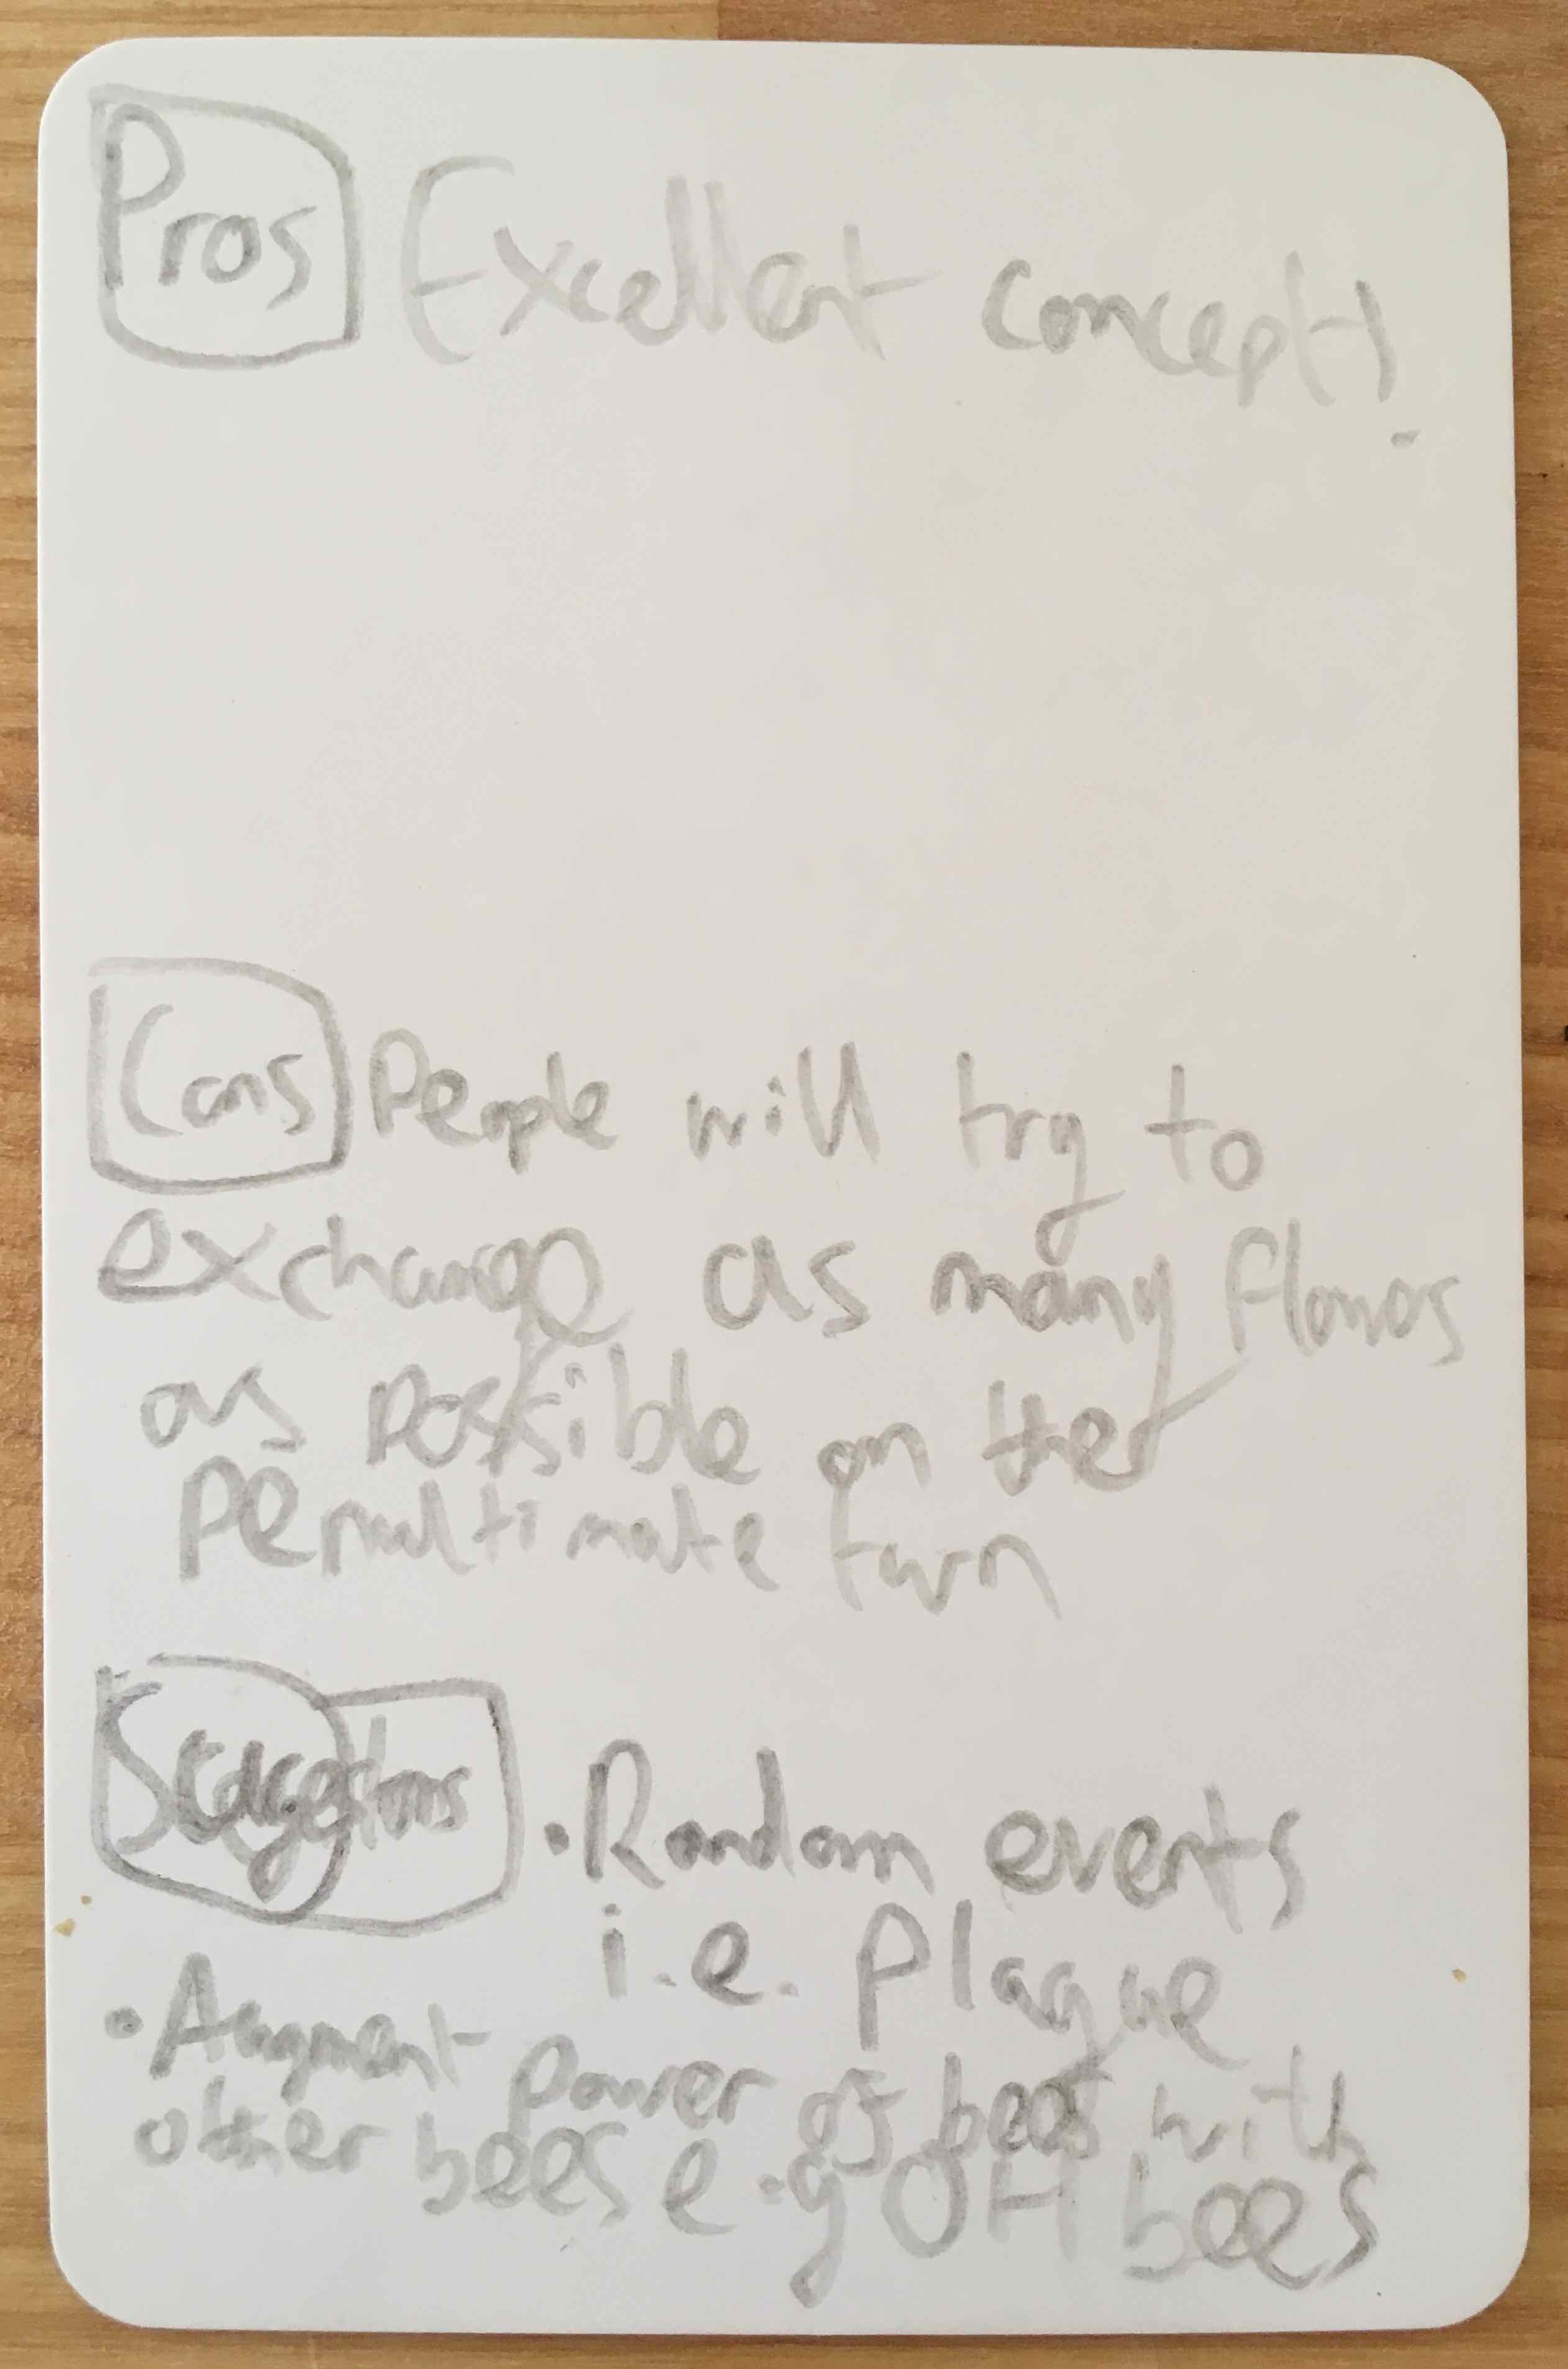 Pros Excellent concept!
Cons People will try to
exchange as many flowers
as possible on their
penultimate turn
Suggestions • Random events
i.e. Plague
• Augment power of bees with
other bees e.g OH bees